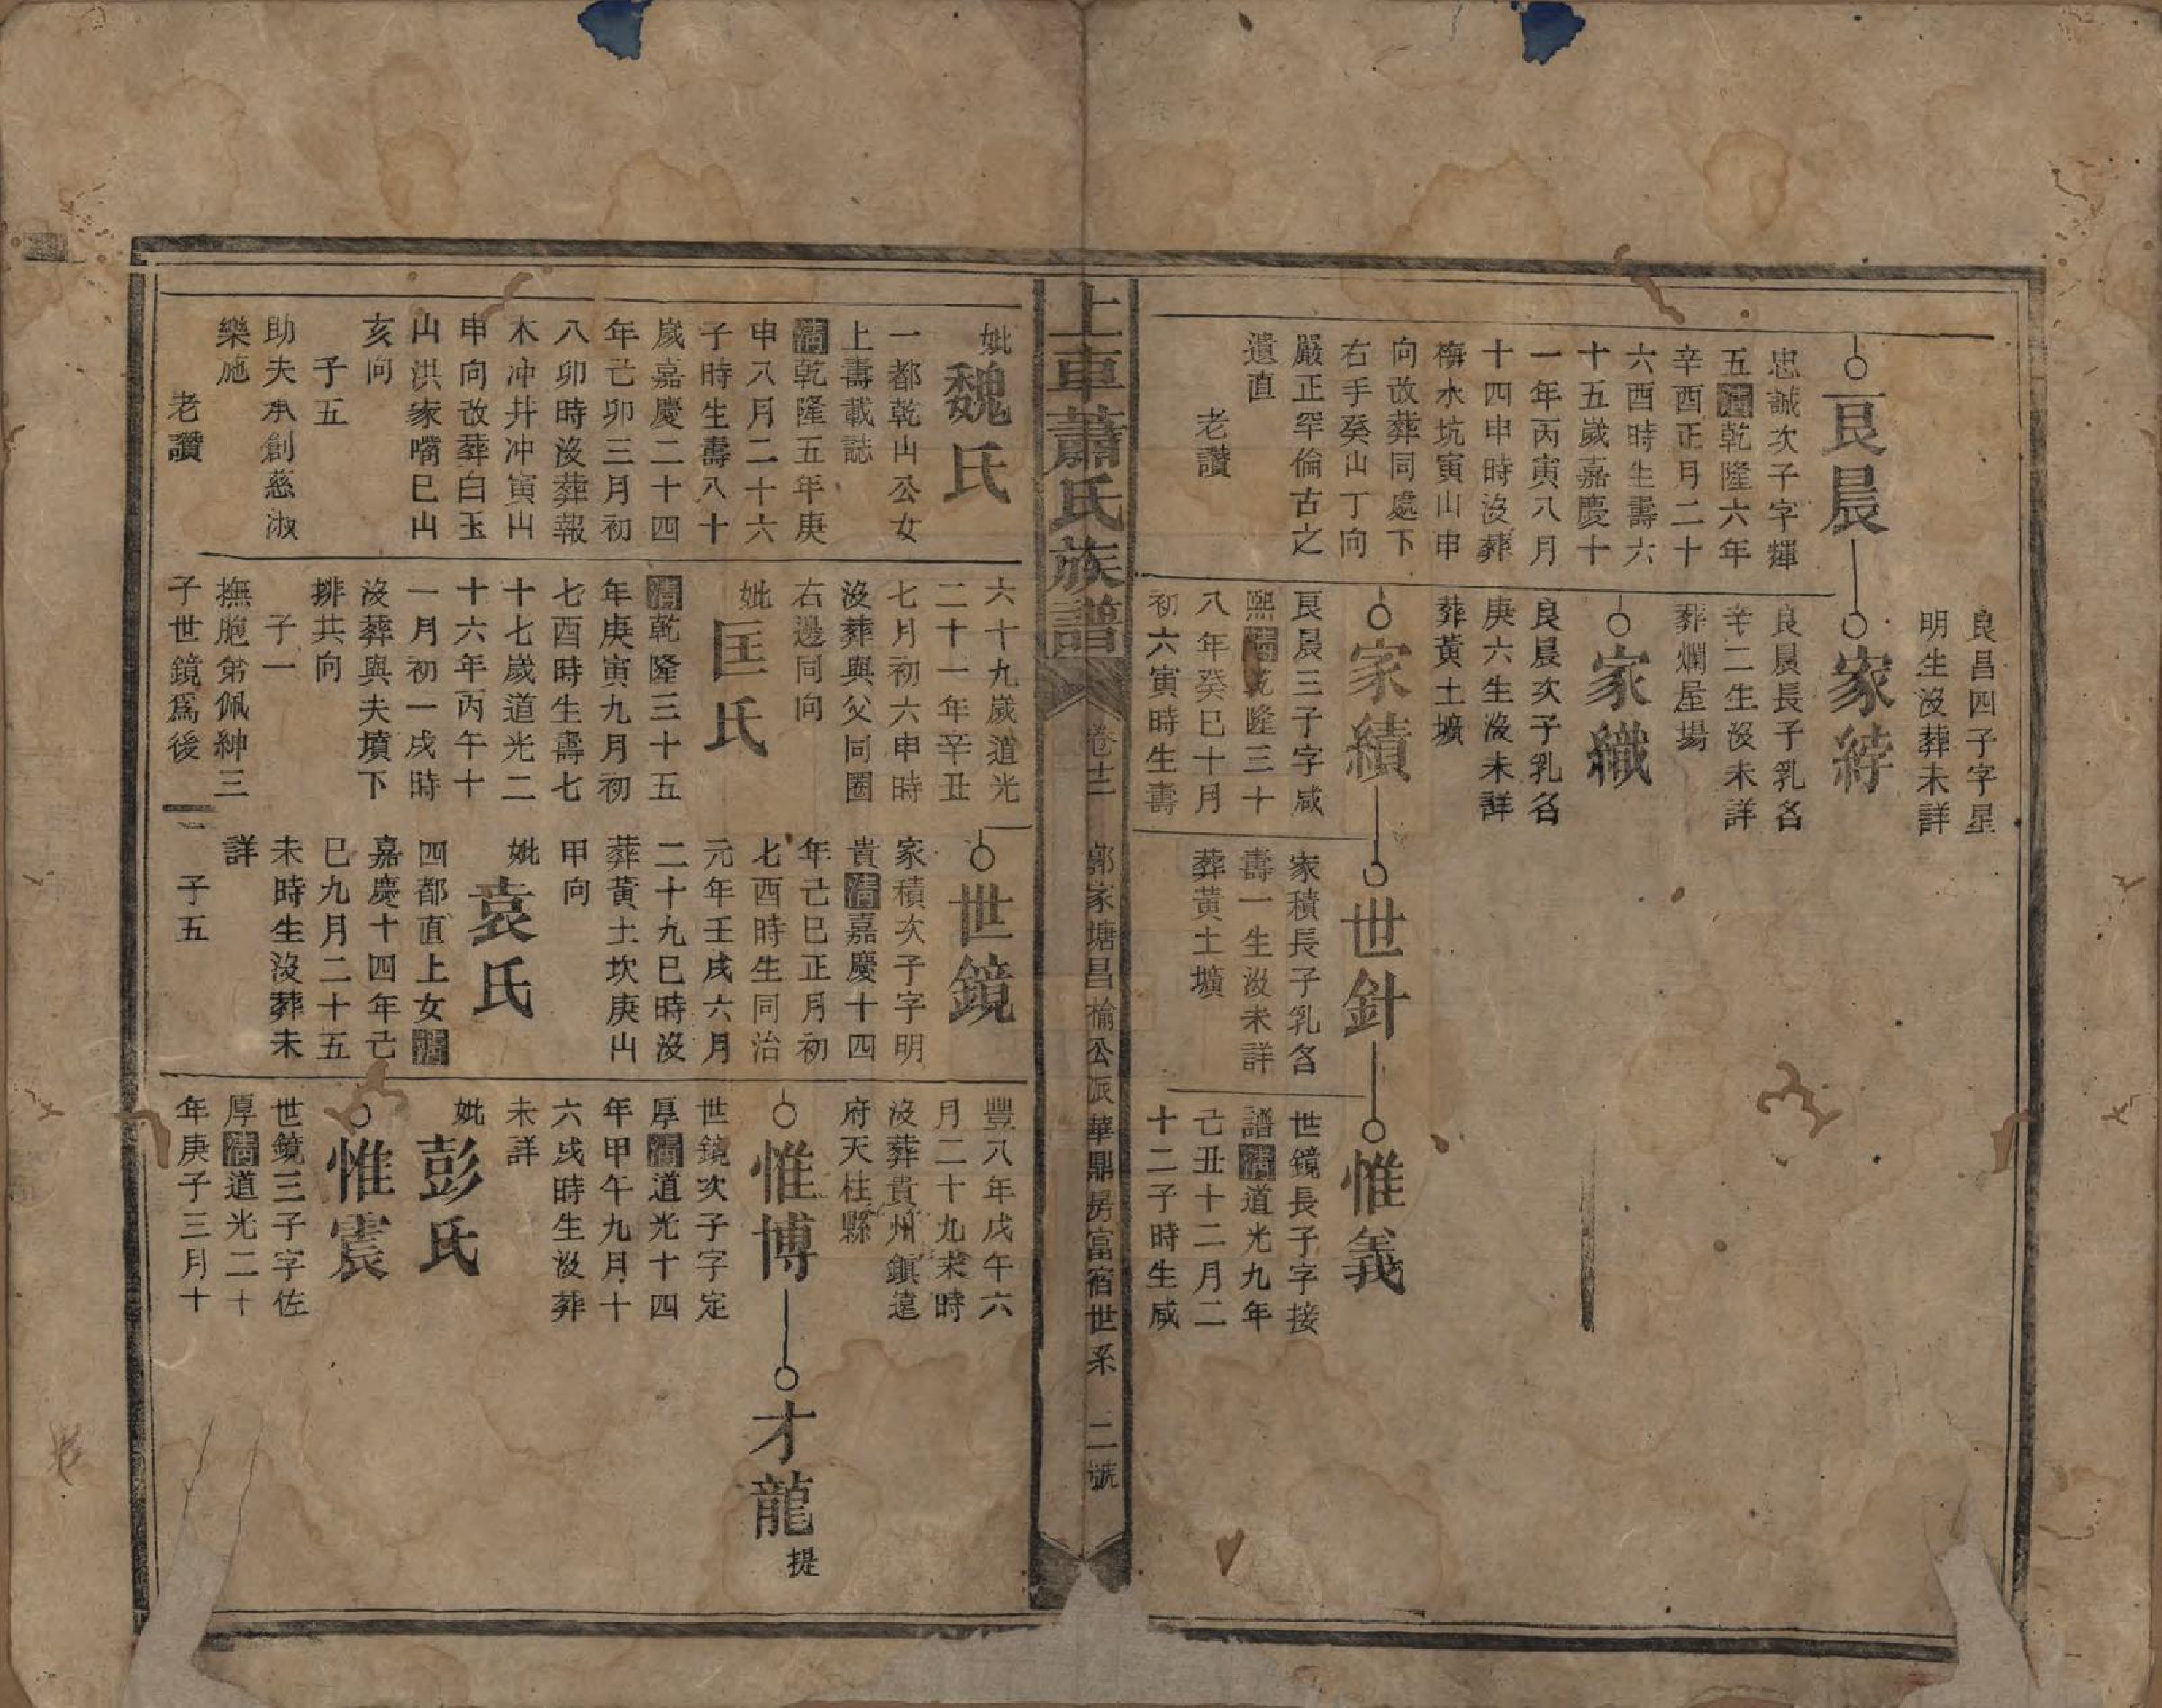 良昌四子字星
明生没葬未詳
良晨
忠誠次子字輝
五清乾隆六年
辛酉正月二十
六酉時生壽六
十五歲嘉慶十
一年丙寅八月
十四申時没葬
梅水坑寅山申
向改葬同處下
右手癸山丁向
嚴正罕倫古之
遺直
老讚
家綍
良晨長子乳名
辛二生没未詳
葬爛屋場
家織
良晨次子乳名
庚六生没未詳
葬黃土壙
家績
良晨三子字咸
熙清乾隆三十
八年癸巳十月
初六寅時生壽
世針
家積長子乳名
壽一生没未詳
葬黃土壙
惟義
世鏡長子字接
譜清道光九年
己丑十二月二
十二子時生咸
上車蕭氏族譜
卷廿二 郭家塘昌楡公派華鼎房富宿世系 二號
妣魏氏
一都乾山公女
上壽載誌
清乾隆五年庚
申八月二十六
子時生壽八十
歲嘉慶二十四
年己卯三月初
八卯時没葬報
木冲井冲寅山
申向改葬白玉
山洪家嘴巳山
亥向
子五
助夫承創慈淑
樂施
老讚
六十九歲道光
二十一年辛丑
七月初六申時
没葬與父同圈
右邊同向
妣匡氏
清乾隆三十五
年庚寅九月初
七酉時生壽七
十七歲道光二
十六年丙午十
一月初一戌時
没葬與夫墳下
排共向
子一
撫胞弟佩紳三
子世鏡爲後
世鏡
家積次子字明
貴清嘉慶十四
年己巳正月初
七酉時生同治
元年壬戌六月
二十九巳時没
葬黃土坎庚山
甲向
妣袁氏
四都直上女清
嘉慶十四年己
巳九月二十五
未時生没葬未
詳
子五
豐八年戊午六
月二十九未時
没葬貴州鎮遠
府天柱縣
惟博
世鏡次子字定
厚清道光十四
年甲午九月十
六戌時生没葬
未詳
妣彭氏
惟震
世鏡三子字佐
厚清道光二十
年庚子三月十
才龍提